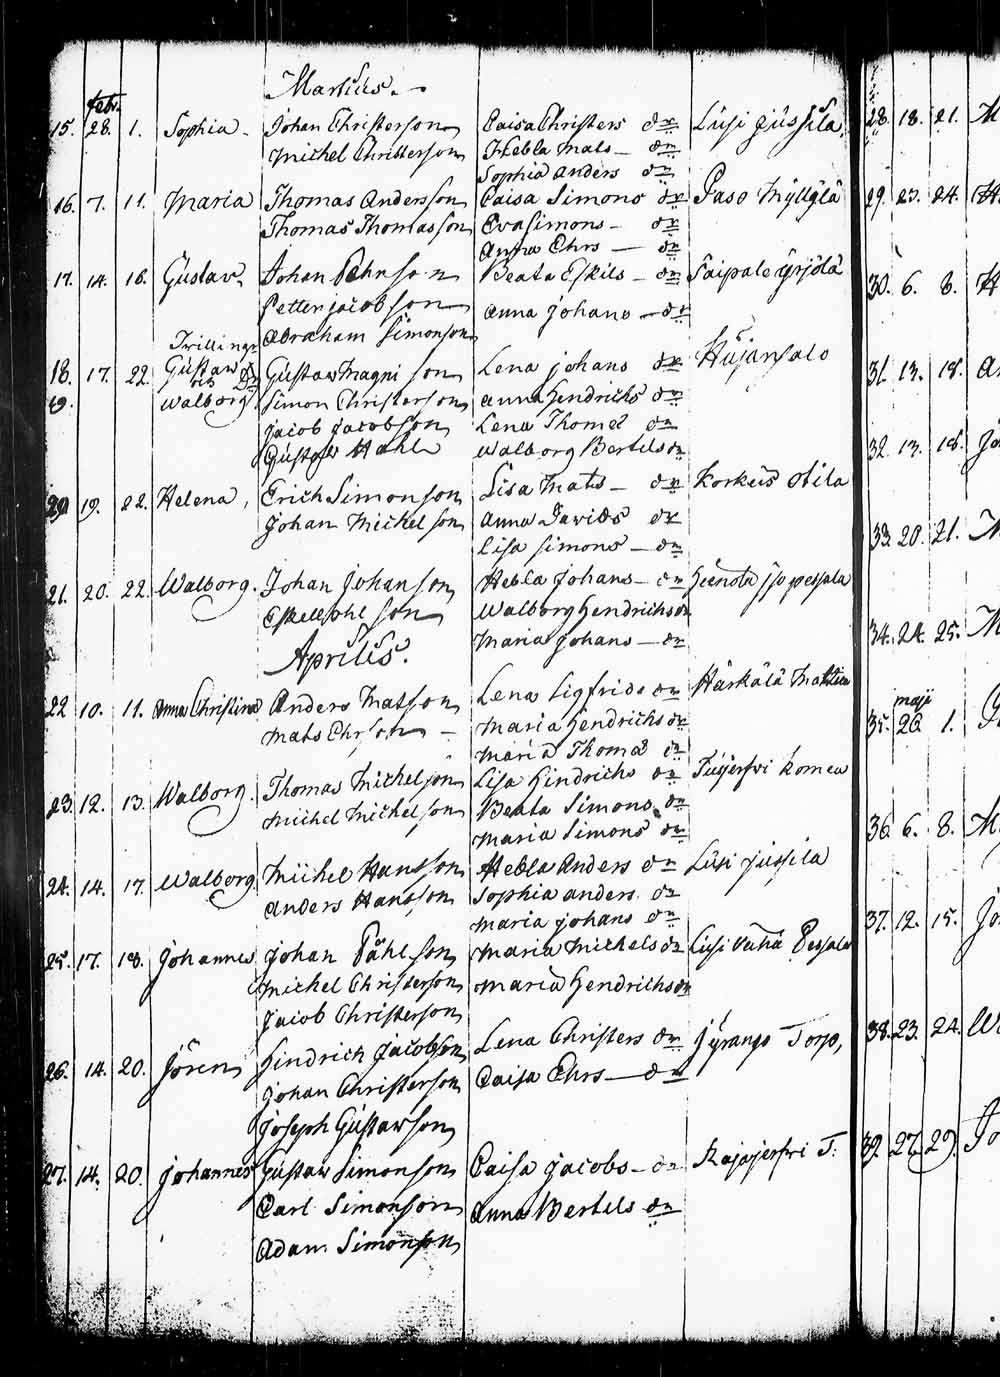 Martius.
febr.
15. 28. 1. Sophia. Johan Christerson Caisa Christers dr Lusi Jussila
Michel Christerson Hebla Mats dr
Sophia Anders dr
16. 7. 11. Maria Thomas Andersson Caisa Simons dr Paso Myllylä
Thomas Thomasson Eva Simons dr
Anna Ehrs dr
17. 14. 18. Gustav Johan Påhnson Beata Eskils dr Saipale Yrjölä
Petter Jacobson Anna Johans dr
Abraham Simonson
Trillingr
18. 17. 22. Gustaw Gustaw Magni son Lena Johans dr Hujansalo
19. och Walborg Simon Christerson Anna Hendrichs dr
Jacob Jacobson Lena Thoma dr
Gustaf Hahle Walborg Bertels dr
20 19. 22. Helena, Erich Simonson Lisa Mats dr Korkeis Otila
Johan Michelson Anna Davids dr
Lisa Simons dr
21. 20. 22. Walborg. Johan Johanson Hebla Johans dr
Eskell Påhl son Walborg Hendrichs dr
Maria Johans dr
Aprilis.
22 10. 11. Anna Christina Anders Matson Lena Sigfrids dr Härkälä Mattila
Mats Ehrson Maria Hendrichs dr
Maria Thoma dr
23. 12. 13. Walborg. Thomas Michelson Lisa Hindrichs dr
Michel Michelson Beata Simons dr
Maria Simons dr
24. 14. 17. Walborg Michel Hansson Hebla Anders dr Lusi Jussila
Anders Hansson Sophia Anders dr
Maria Johans dr
25. 17. 18. Johannes Johan Påhlson Maria Michels dr Lusi Vähä Pessala
Michel Christerson Maria Hendrichs dr
Jacob Christerson
26. 14. 20. Jören Hindrich Jacobson Lena Christers dr Jyrängo Torp,
Johan Christerson Caisa Ehrs dr
Joseph Gustawson
27. 14. 20. Johannes Gustaw Simonson Caisa Jacobs dr Kajajerfvi T.
Carl Simonson Anna Bertels dr
Adam Simonson
28. 18. 21. M
29. 23. 24.
30. 6. 8. H
31. 13. 18. An
32. 13. 18. Jo
33. 20. 21. M
34. 24. 25. M
maji
35. 26. 1.
36. 6. 8. M
37. 12. 15. Jo
38. 23. 24. W
39. 27. 29. Jo